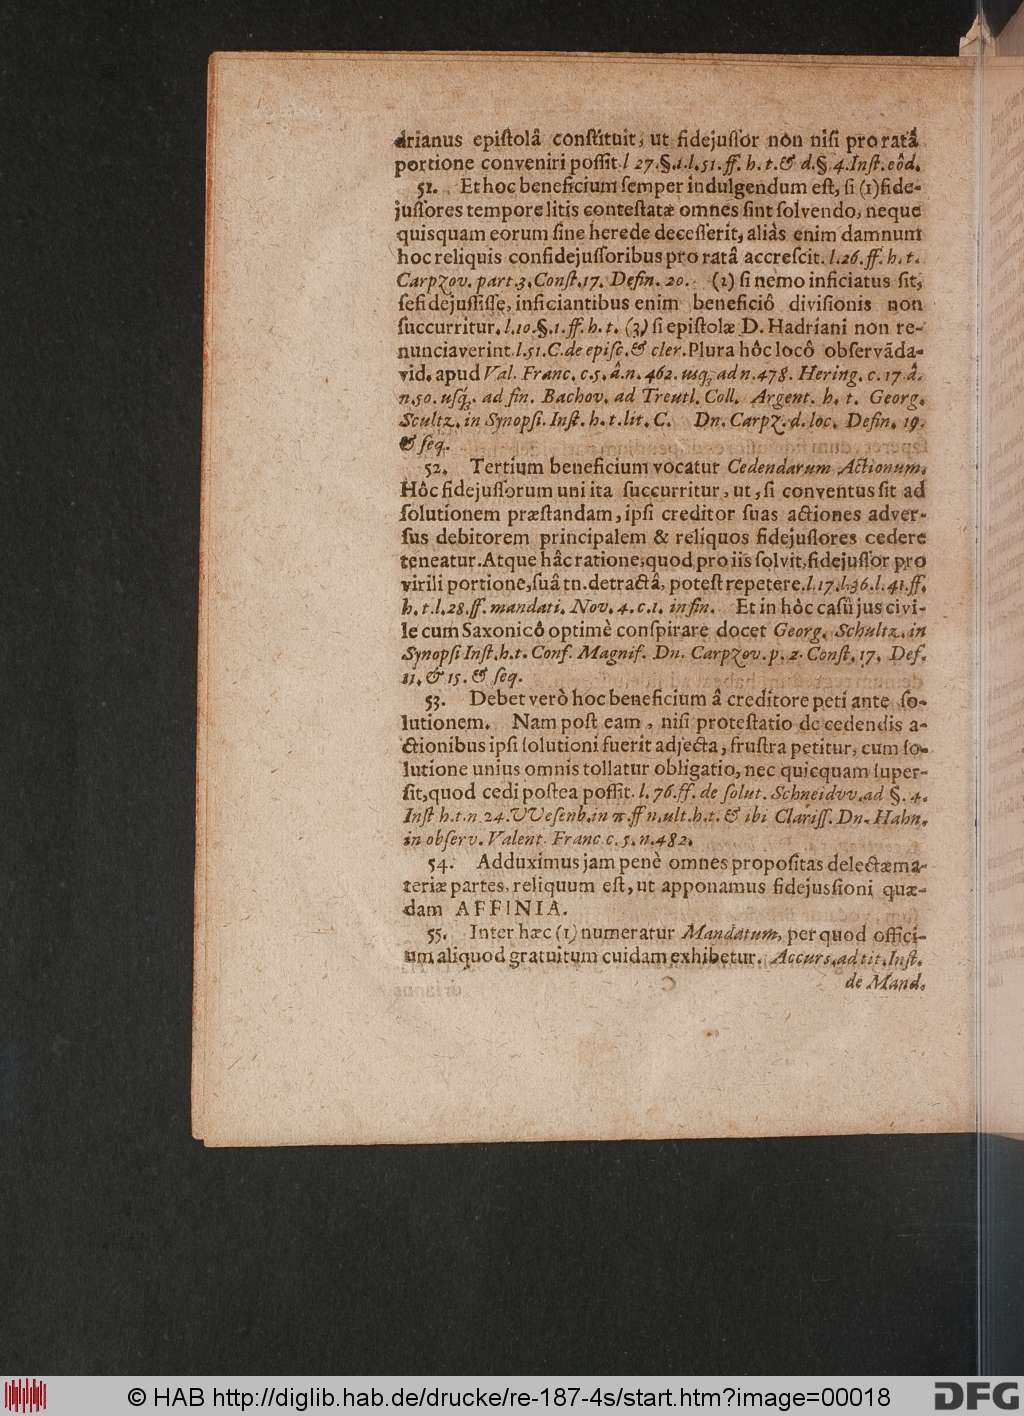 drianus epiſtolâ conſtituit, ut fidejuſſor non niſi pro ratâ
portione conveniri poſſit. l 27. §. 1. l. 51. ff. h. t. & d. §. 4. Inſt. eôd.
51. Et hoc beneficium ſemper indulgendum eſt, ſi (1) fide-
juſſores tempore litis conteſtatæ omnes ſint ſolvendo, neque
quisquam eorum ſine herede deceſſerit, aliàs enim damnum
hoc reliquis confidejuſſoribus pro ratâ accreſcit. l. 26. ff. h. t.
Carpzov. part. 3. Conſt. 17. Defin. 20. (2) ſi nemo inficiatus ſit,
ſe fidejuſſiſſe, inficiantibus enim beneficiô diviſionis non
ſuccurritur. l. 10. §. 1. ff. h. t. (3) ſi epiſtolæ D. Hadriani non re-
nunciaverint. l. 51. C. de epiſc. & cler. Plura hôc locô obſervãda-
vid. apud Val. Franc. c. 5. â. n. 462. usq; ad n. 478. Hering. c. 17. â.
n. 50. uſq; ad fin. Bachov. ad Treutl. Coll. Argent. h. t. Georg.
Scultz. in Synopſi. Inſt. h. t. lit. C. Dn. Carpz. d. loc. Defin. 19.
& ſeq.
52. Tertium beneficium vocatur Cedendarum Actionum.
Hôc fidejuſſorum uni ita ſuccurritur, ut, ſi conventus ſit ad
ſolutionem præſtandam, ipſi creditor ſuas actiones adver-
ſus debitorem principalem & reliquos fidejuſſores cedere
teneatur. Atque hâc ratione, quod pro iis ſolvit, fidejuſſor pro
virili portione, ſuâ tn. detractâ, poteſt repetere. l. 17. l. 36. l. 41. ff.
h. t. l. 28. ff. mandati. Nov. 4. c. 1. in fin. Et in hôc caſû jus civi-
le cum Saxonicô optimè conſpirare docet Georg. Schultz. in
Synopſi Inſt. h. t. Conf. Magnif. Dn. Carpzov. p. 2. Conſt. 17. Def.
11. & 15. & ſeq.
53. Debet verò hoc beneficium â creditore peti ante ſo-
lutionem. Nam poſt eam, niſi proteſtatio de cedendis a-
ctionibus ipſi ſolutioni fuerit adjecta, fruſtra petitur, cum ſo-
lutione unius omnis tollatur obligatio, nec quicquam ſuper-
ſit, quod cedi poſtea poſſit. l. 76. ff. de ſolut. Schneidvv. ad §. 4.
Inſt h. t. n 24. VVeſenb. in π. ff n. ult. h. t. & ibi Clariſſ. Dn. Hahn.
in obſerv. Valent. Franc c. 5. n. 482.
54. Adduximus jam penè omnes propoſitas delectæ ma-
teriæ partes, reliquum eſt, ut apponamus fidejusſioni quæ-
dam AFFINIA.
55. Inter hæc (1) numeratur Mandatum, per quod offici-
um aliquod gratuitum cuidam exhibetur. Accurs. ad tit. Inſt.
de Mand.
© HAB http://diglib.hab.de/drucke/re-187-4s/start.htm?image=00018
DFG